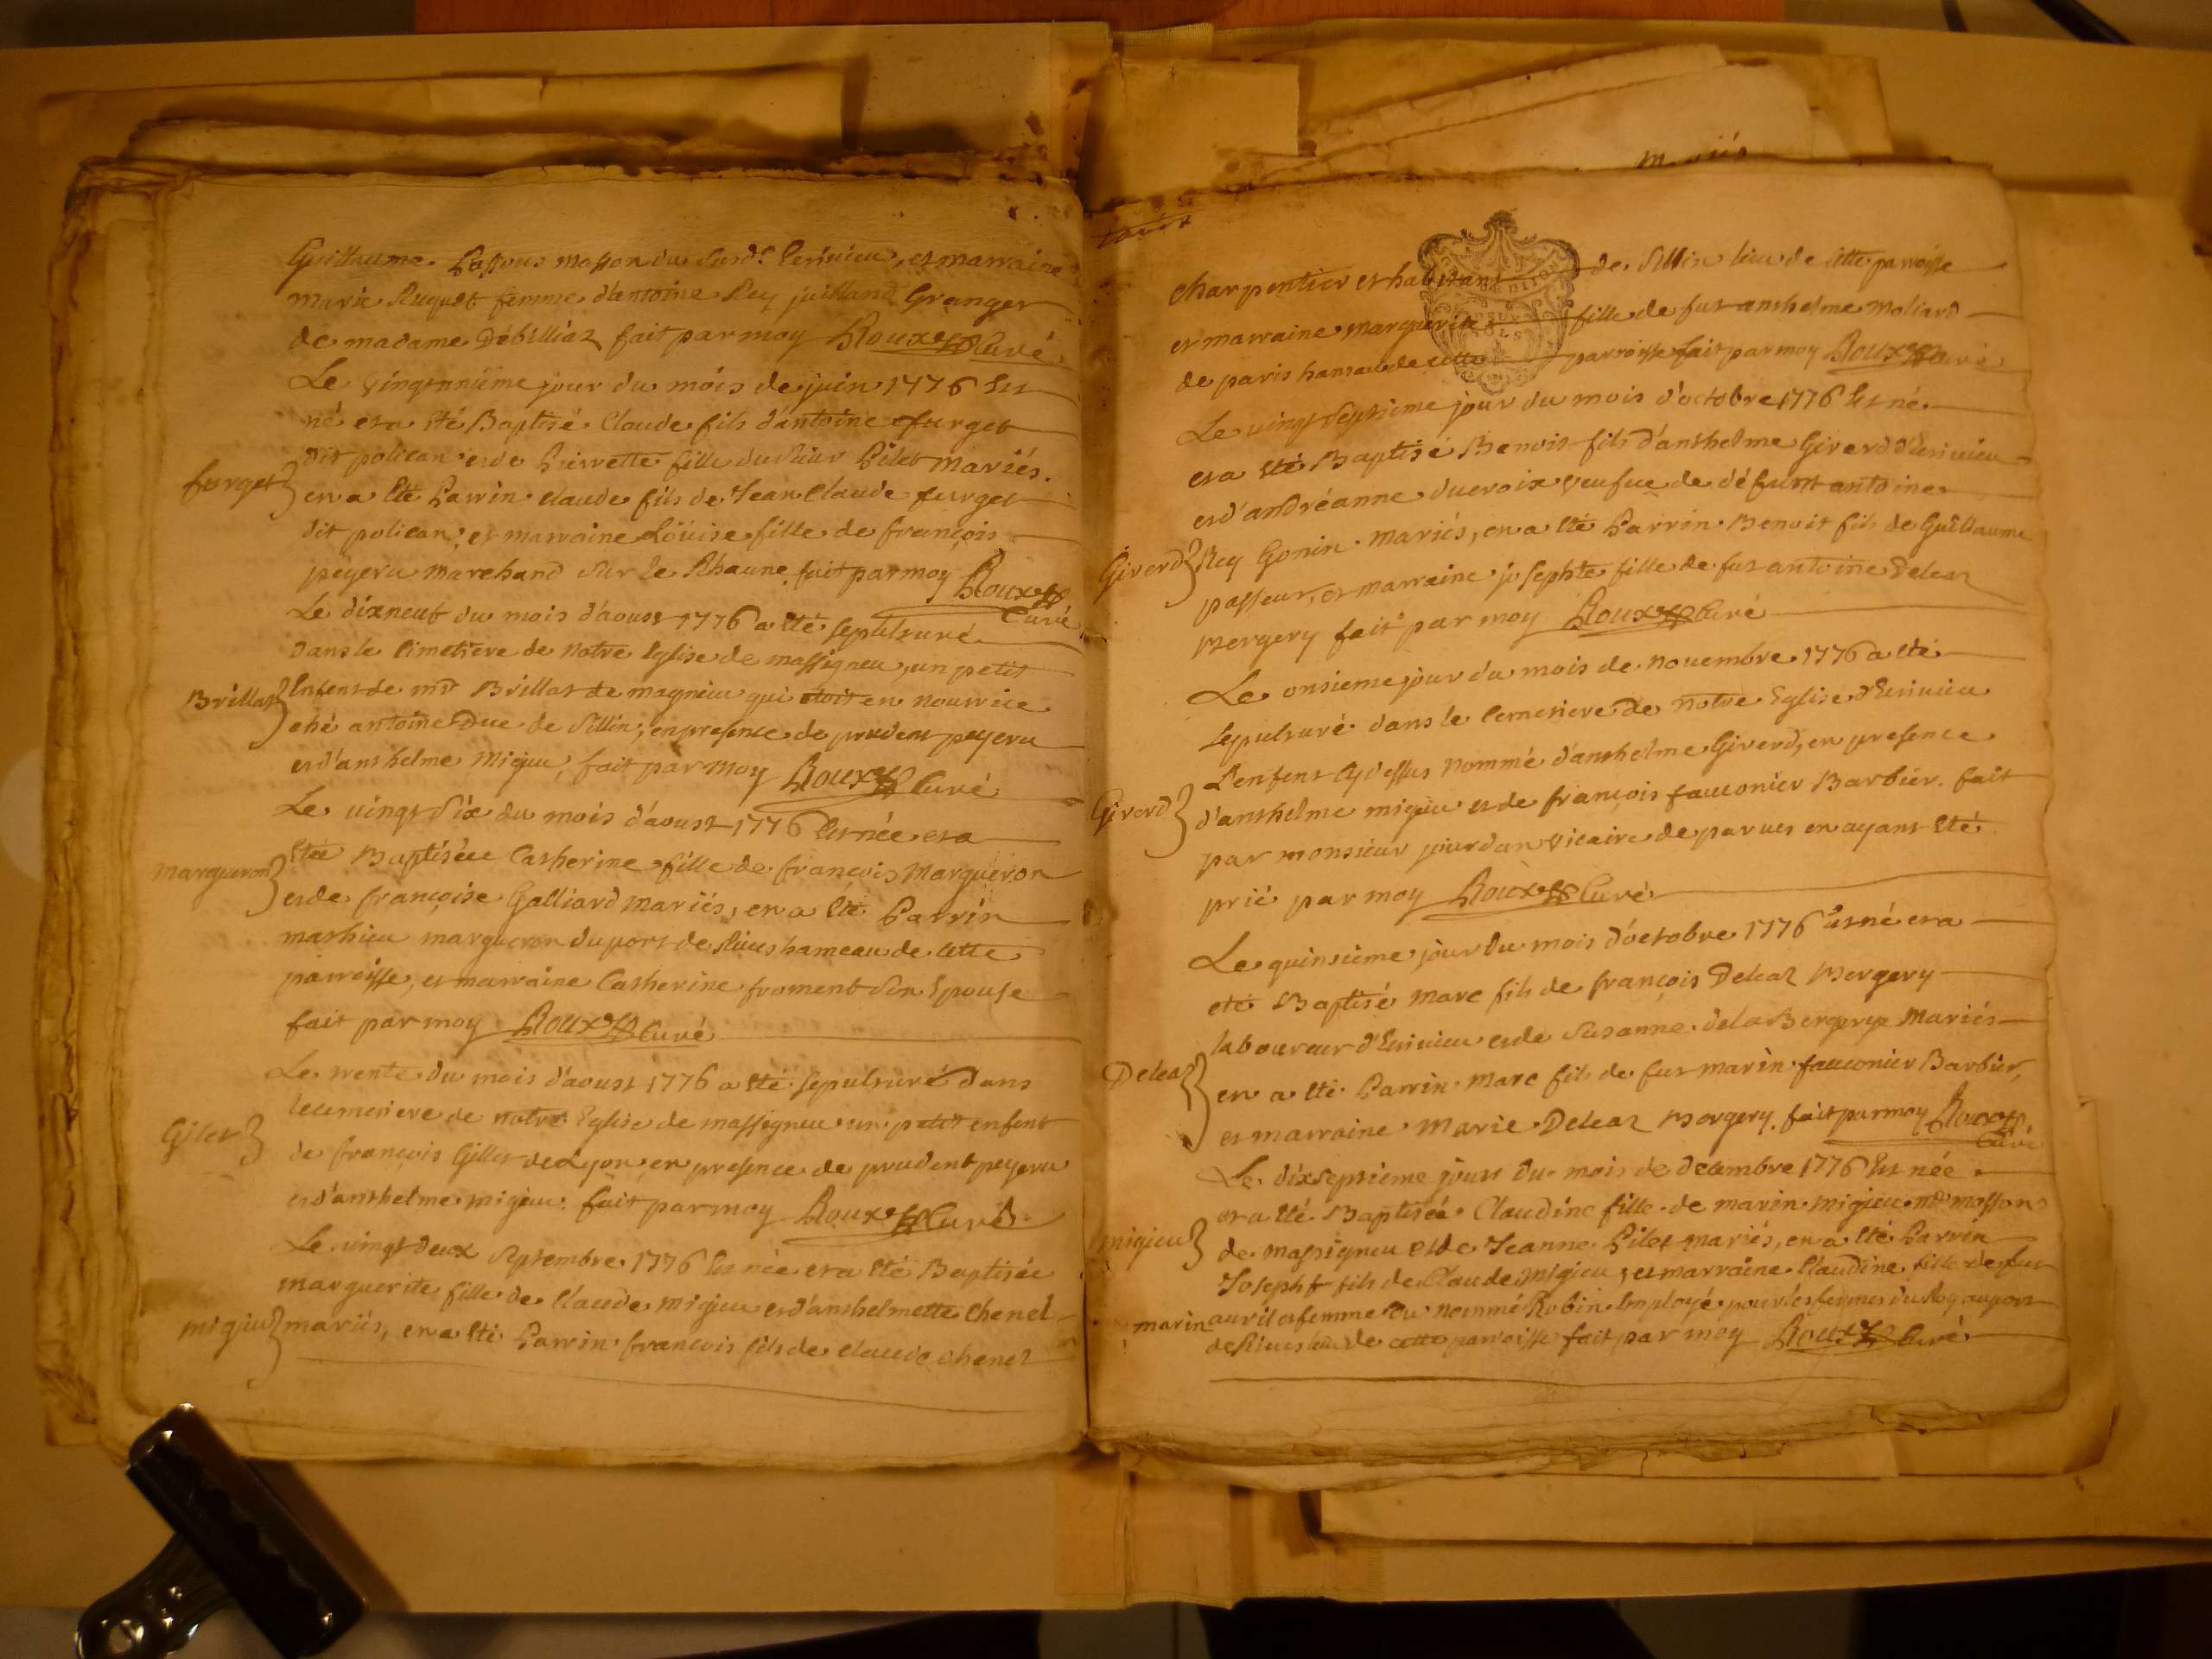 Guillaume. Passous masson du susd.t Perisieu, et marraine
marie Ruquet femme d'antoine Rey juilland Granger
de madame Débilliaz fait par moy Roux Curé
Le vingtnniéme jour du mois de juin 1776 Est
né et a Eté Baptisé Claude fils d'antoine furget
dit polican et de Pierrette fille du sieur Pilet mariés.
furget en a Eté Parrin claude fils de Jean Claude furget
dit polican, et marraine Loüise fille de françois
peyeru marchand sur le Rhaune fait par moy Roux
Curé
Le dixneuf du mois d'aoust 1776 a Eté sepulturé
dans le Cimetiere de notre Eglise de massigneu, un petit
Brillat Enfent de mr Brillat de magnieu qui etoit en nourrice
ché antoine Duc de Sillin; en presence de prudent peyeru
et d'anthelme Migieu, fait par moy Roux Curé
Le vingt Six du mois d'aoust 1776 Est née et a
Etée Baptiséee Catherine fille de françois Margueron
margueron et de françoise Galliard mariés, en a Eté Parrin
mathieu margueron du port de slieus hameau de Cette
parroisse, et marraine Catherine froment son Epouse
fait par moy Roux Curé
Le trente du mois d'aoust 1776 a Eté sepulturé dans
le cemetiere de notre Eglise de massigneu un petit enfent
Gilet de françois Gillet de Lyon en presence de prudent peyeru
et d'anthelme migieu: fait par moy Roux Curé
Le vingt deux Septembre 1776 Est née et a Eté Baptisée
marguerite fille de Claude migieu et d'anthelmette Chenel
migieu mariés, en a Eté Parrin françois fils de claude chenel
charpentier et habitant de Sillin lieu de cette parroisse
et marraine marguerite fille de fut anthelme moliard
de paris hamau de cette parroisse fait par moy Roux Curé
Le vingt septieme jour du mois d'octobre 1776 Est né
et a Eté Baptisé Benoit fils d'anthelme Giverd d'Eurieu
et d'andréanne ducroix veufue de défunt antoine
Giverd Rey Gonin mariés, en a Eté Parrin Benoit fils de Guillaume
passeur, et marraine josephte fille de fut antoine Deleaz
Mergery fait par moy Roux Curé
Le onsieme jour du mois de novembre 1776 a Eté
sepulturé dans le Cemetiere de notre Eglise d'Eurieu
L'enfent Cydessus nommé d'anthelme Giverd, en presence
Giverd d'anthelme migieu et de françois fauconier Barbier. fait
par monsieur jourdan vicaire de parves en ayant Eté
prié par moy Roux Curé
Le quinsieme jour du mois d'octobre 1776 est né et a
eté Baptisé Marc fils de françois Deleaz Mergery
laboureur d'Eurieu et de Susanne dela Bergerye Mariés
Deleaz en a Eté Parrin marc fils de fut marin fauconier Barbier,
et marraine Marie Deleaz Mergery. fait par moy Roux
Curé
Le dixseptieme jour du mois de decembre 1776 Est née
et a Eté Baptisée Claudine fille de marin migieu mtre masson
migieu de massigneu et de Jeanne Pilet mariés, en a Eté Parrin
Josepht fils de Claude migieu, et marraine Claudine fille de fut
marin avril et femme du nommé Robin Employé pour les fermes du Roy au port
de slieus lieu de cette parroisse fait par moy Roux Curé